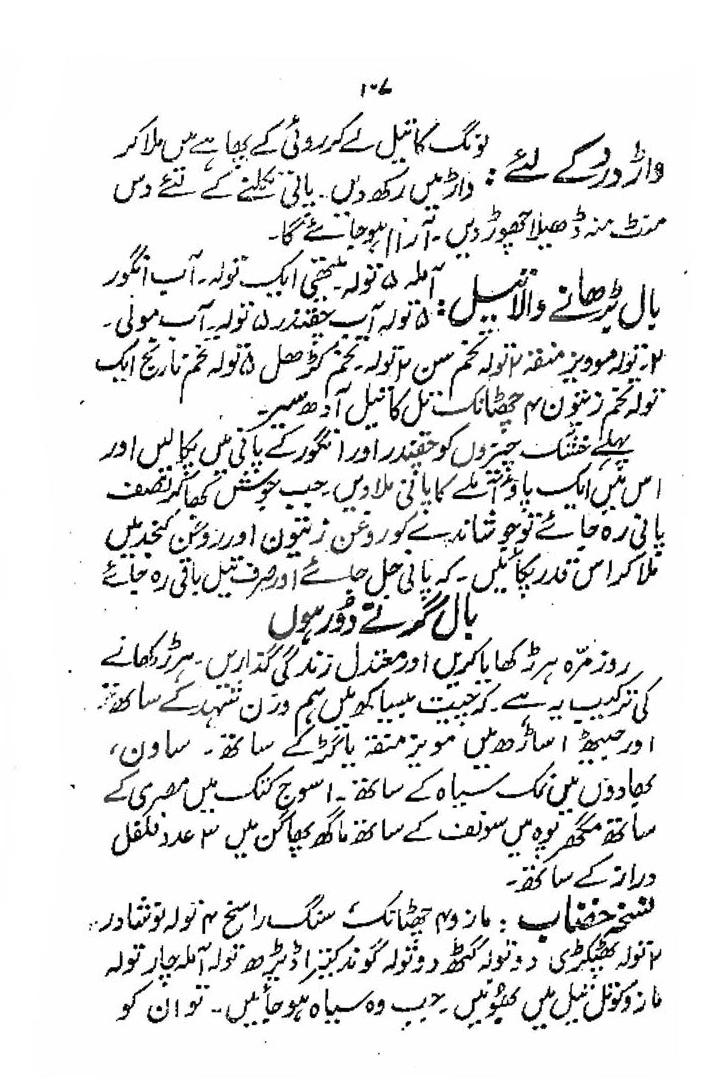 ۱۰۷
واڑ درد کے لئے : لونگ کا تیل لے کر روئی کے پھاہے میں ملا کر
داڑ میں رکھ دیں۔ پانی نکلنے کے لئے دس
منٹ منہ ڈھیلا چھوڑ دیں۔ آرام ہو جائے گا۔
بال بڑھانے والا تیل : آملہ ۵ تولہ۔ میتھی ایک تولہ۔ آب انگور
۵ تولہ آب چقندر ۵ تولہ۔ آب مولی۔
۲۔ تولہ مویز منقہ ۲ تولہ تخم سن ۲ تولہ۔ تخم کڑھل ۵ تولہ تخم نارنج ایک
تولہ تخم زیتون ۴ چھٹانک تل کا تیل آدھ سیر۔
پہلے خشک چیزوں کو چقندر اور انگور کے پانی میں پکا لیں اور
اس میں ایک پاؤ آملے کا پانی ملا دیں۔ جب جوش کھا کر نصف
پانی رہ جائے تو جوشاندے کو روغن زیتون اور روغن کنجد میں
ملا کر اس قدر پکائیں۔ کہ پانی جل جائے اور صرف تیل باقی رہ جائے
بال گرتے دُور ہوں
روزمرّہ ہرڑ کھایا کریں اور معتدل زندگی گذاریں۔ ہرڑ کھانے
کی ترکیب یہ ہے۔ کہ چیت بیساکھ میں ہم وزن شہد کے ساتھ۔
اور جیٹھ اساڑھ میں مویز منقہ یا گڑ کے ساتھ۔ ساون،
بھادوں میں نمک سیاہ کے ساتھ۔ اسوج کتک میں مصری کے
ساتھ مگھر پوہ میں سونف کے ساتھ ماگھ پھاگن میں ۳ عدد فلفل
دراز کے ساتھ۔
نسخہ خضاب : مازو ۴ چھٹانک سنگ راسخ ۴ تولہ نوشادر۔
۲ تولہ پھٹکڑی دو تولہ کٹھ دو تولہ گوند کتیرا ڈیڑھ تولہ آملہ چار تولہ
مازو کو تل تیل میں بھونیں۔ جب وہ سیاہ ہو جائیں۔ تو ان کو